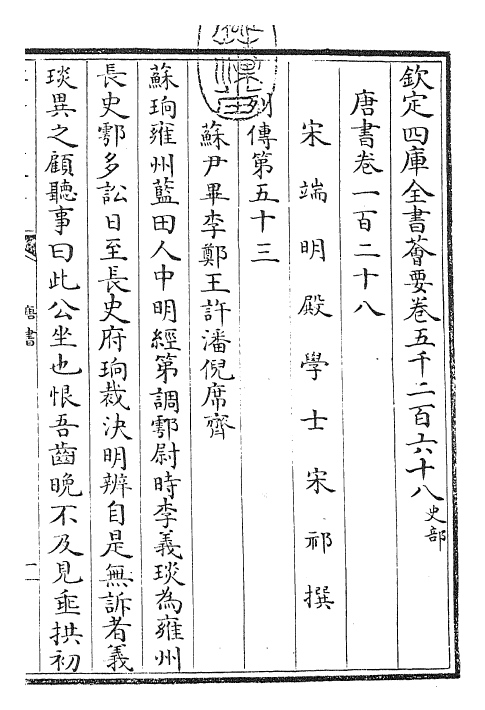 欽定四庫全書薈要卷五千二百六十八史部
唐書卷一百二十八
宋端明殿學士宋祁撰
列傳第五十三
蘇尹畢李鄭王許潘倪席齊
蘇珦雍州藍田人中明經第調鄠尉時李義琰為雍州
長史鄠多訟日至長史府珦裁決明辨自是無訴者義
琰異之顧聽事曰此公坐也恨吾齒晚不及見垂拱初
唐書
一